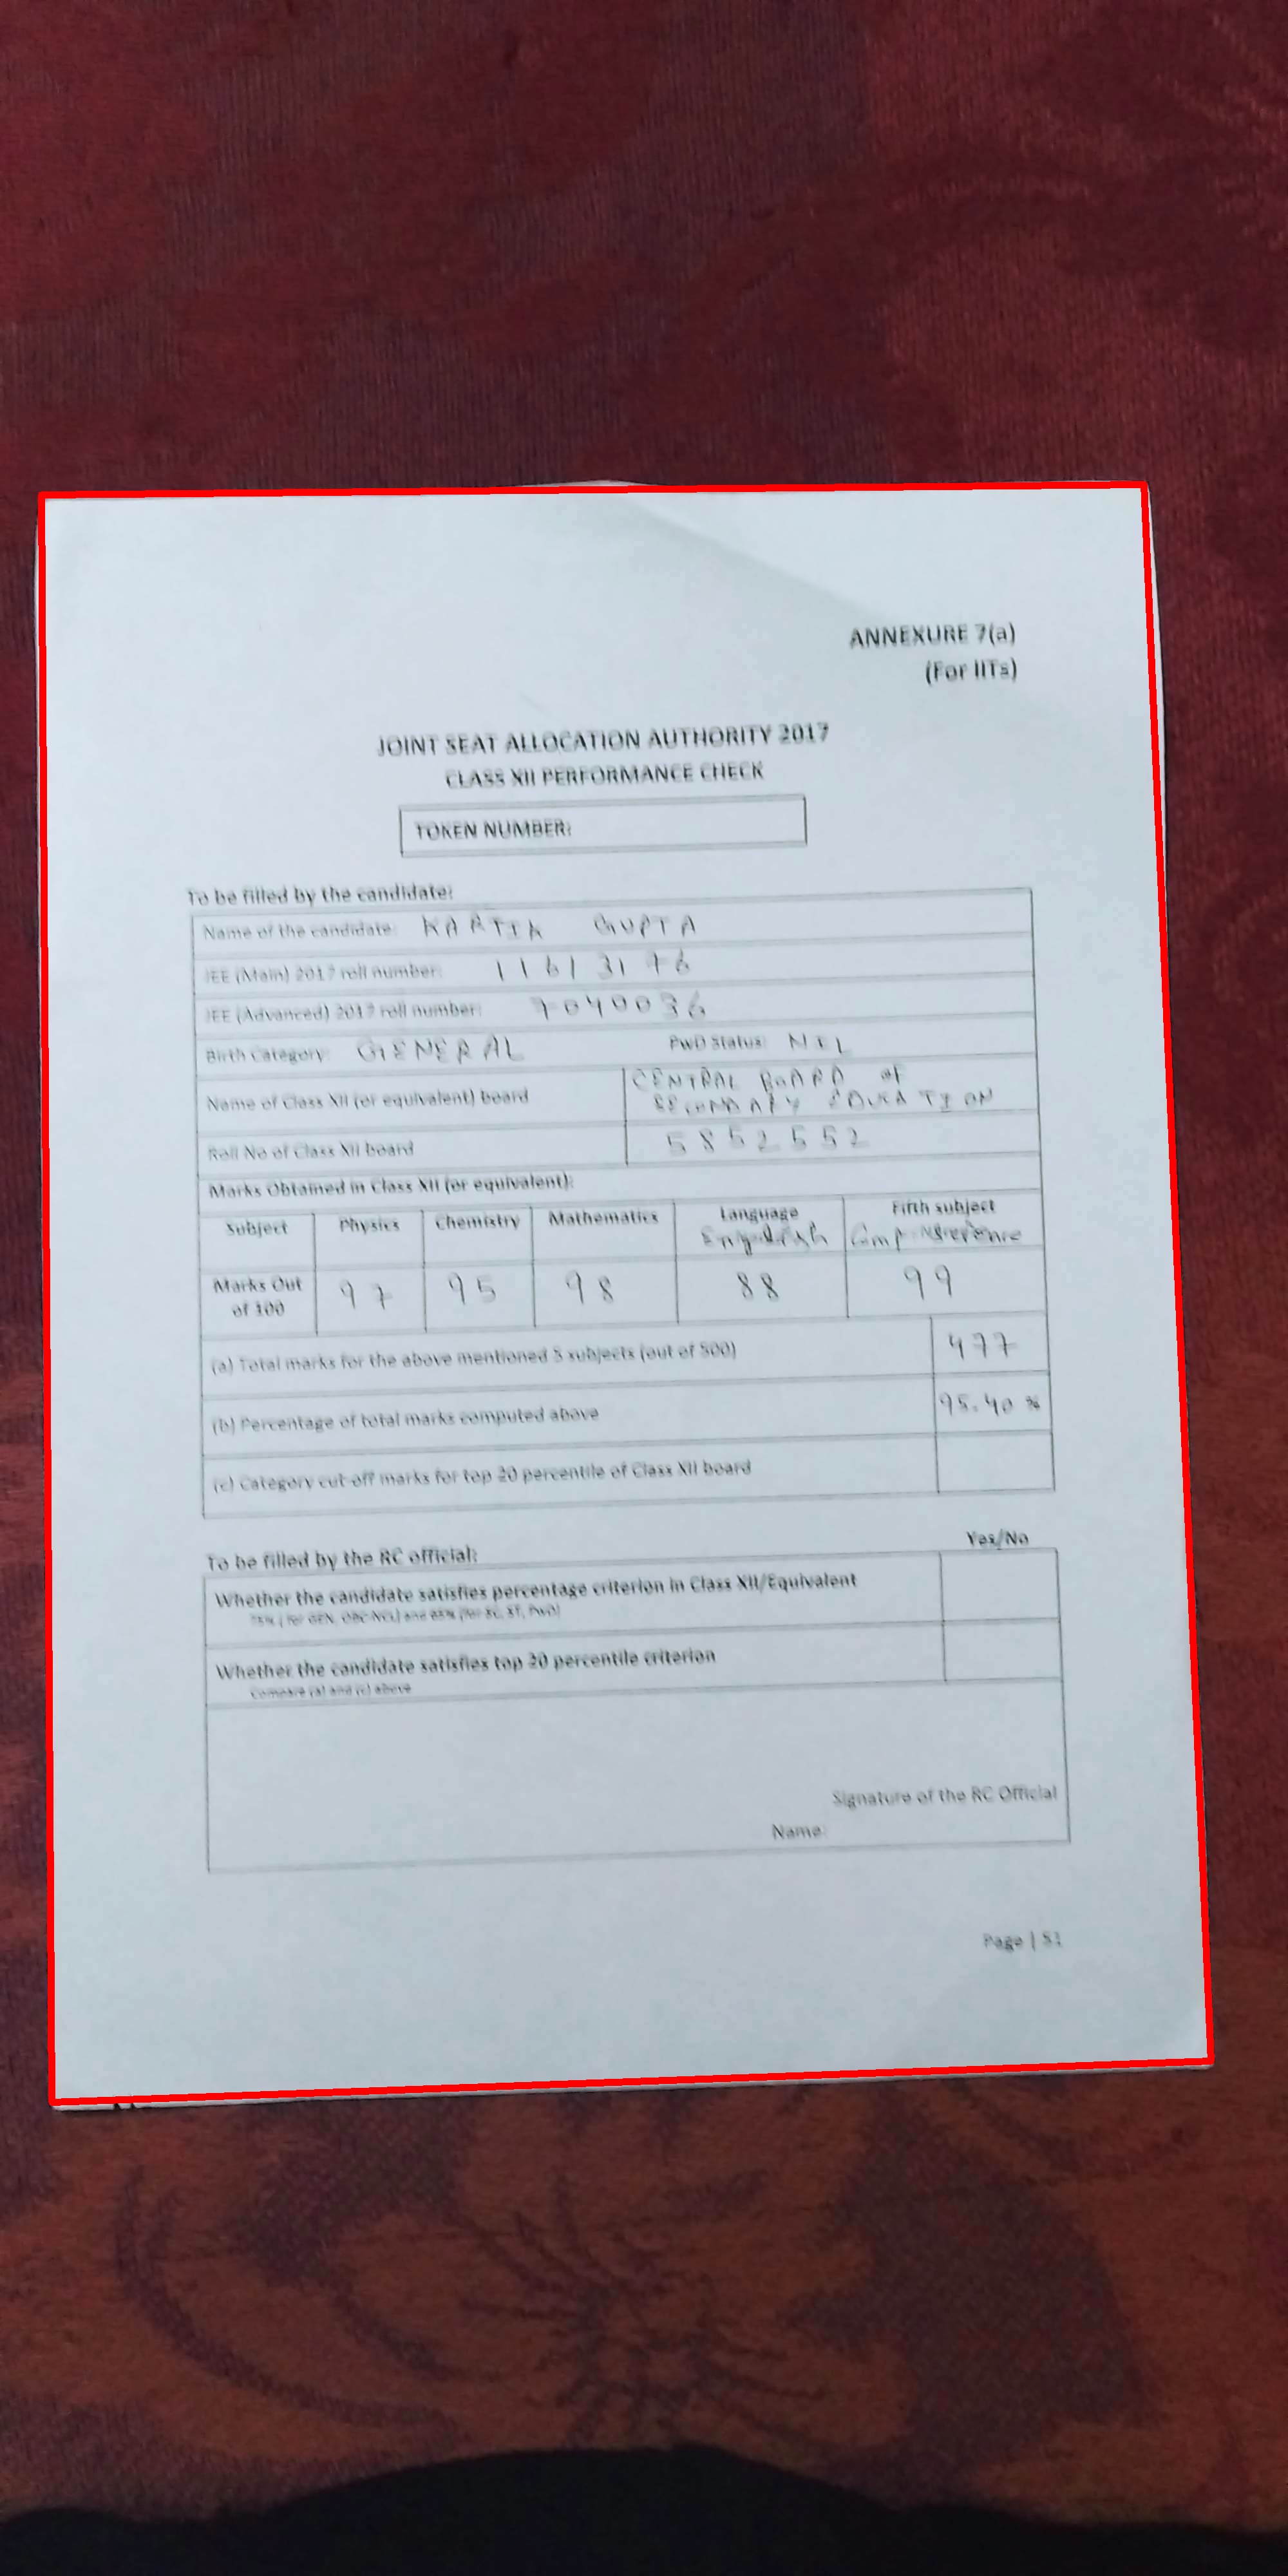 ANNEXURE 7(a)
(For IITs)
JOINT SEAT ALLOCATION AUTHORITY 2017
CLASS XII PERFORMANCE CHECK
TOKEN NUMBER:
To be filled by the candidate:
Name of the candidate: KARTIK GUPTA
JEE (Main) 2017 roll number: 11613176
JEE (Advanced) 2017 roll number: 7040036
Birth Category: GENERAL PwD Status: NIL
Name of Class XII (or equivalent) board CENTRAL BOARD OF
SECONDARY EDUCATION
Roll No of Class XII board 5852552
Marks Obtained in Class XII (or equivalent):
Subject Physics Chemistry Mathematics Language Fifth subject
English Comp
Marks Out of 100 97 95 98 88 99
(a) Total marks for the above mentioned 5 subjects (out of 500) 477
(b) Percentage of total marks computed above 95.40 %
(c) Category cut-off marks for top 20 percentile of Class XII board
To be filled by the RC official: Yes/No
Whether the candidate satisfies percentage criterion in Class XII/Equivalent
75% ( for GEN, OBC-NCL) and 65% (for SC, ST, PwD)
Whether the candidate satisfies top 20 percentile criterion
Compare (a) and (c) above
Signature of the RC Official
Name:
Page | 51